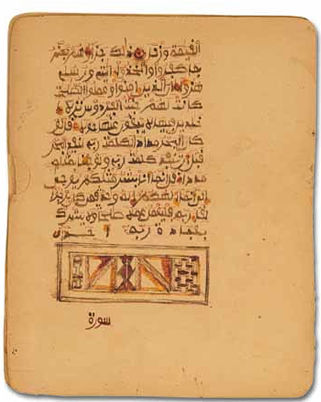 القيمة وزنا ذلك جزاؤهم جهنم
بما كفروا واتخذوا ءايتي ورسلي
هزؤا ان الذين ءامنوا وعملوا الصلحت
كانت لهم جنت الفردوس نزلا
خلدين فيها لا يبغون عنها حولا قل لو
كان البحر مدادا لكلمت ربي لنفد البحر
قبل ان تنفد كلمت ربي ولو جئنا بمثله
مددا قل انما انا بشر مثلكم يوحى
الي انما الهكم اله وحد فمن كان يرجوا
لقاء ربه فليعمل عملا صلحا ولا يشرك
بعبادة ربه احدا
سورة